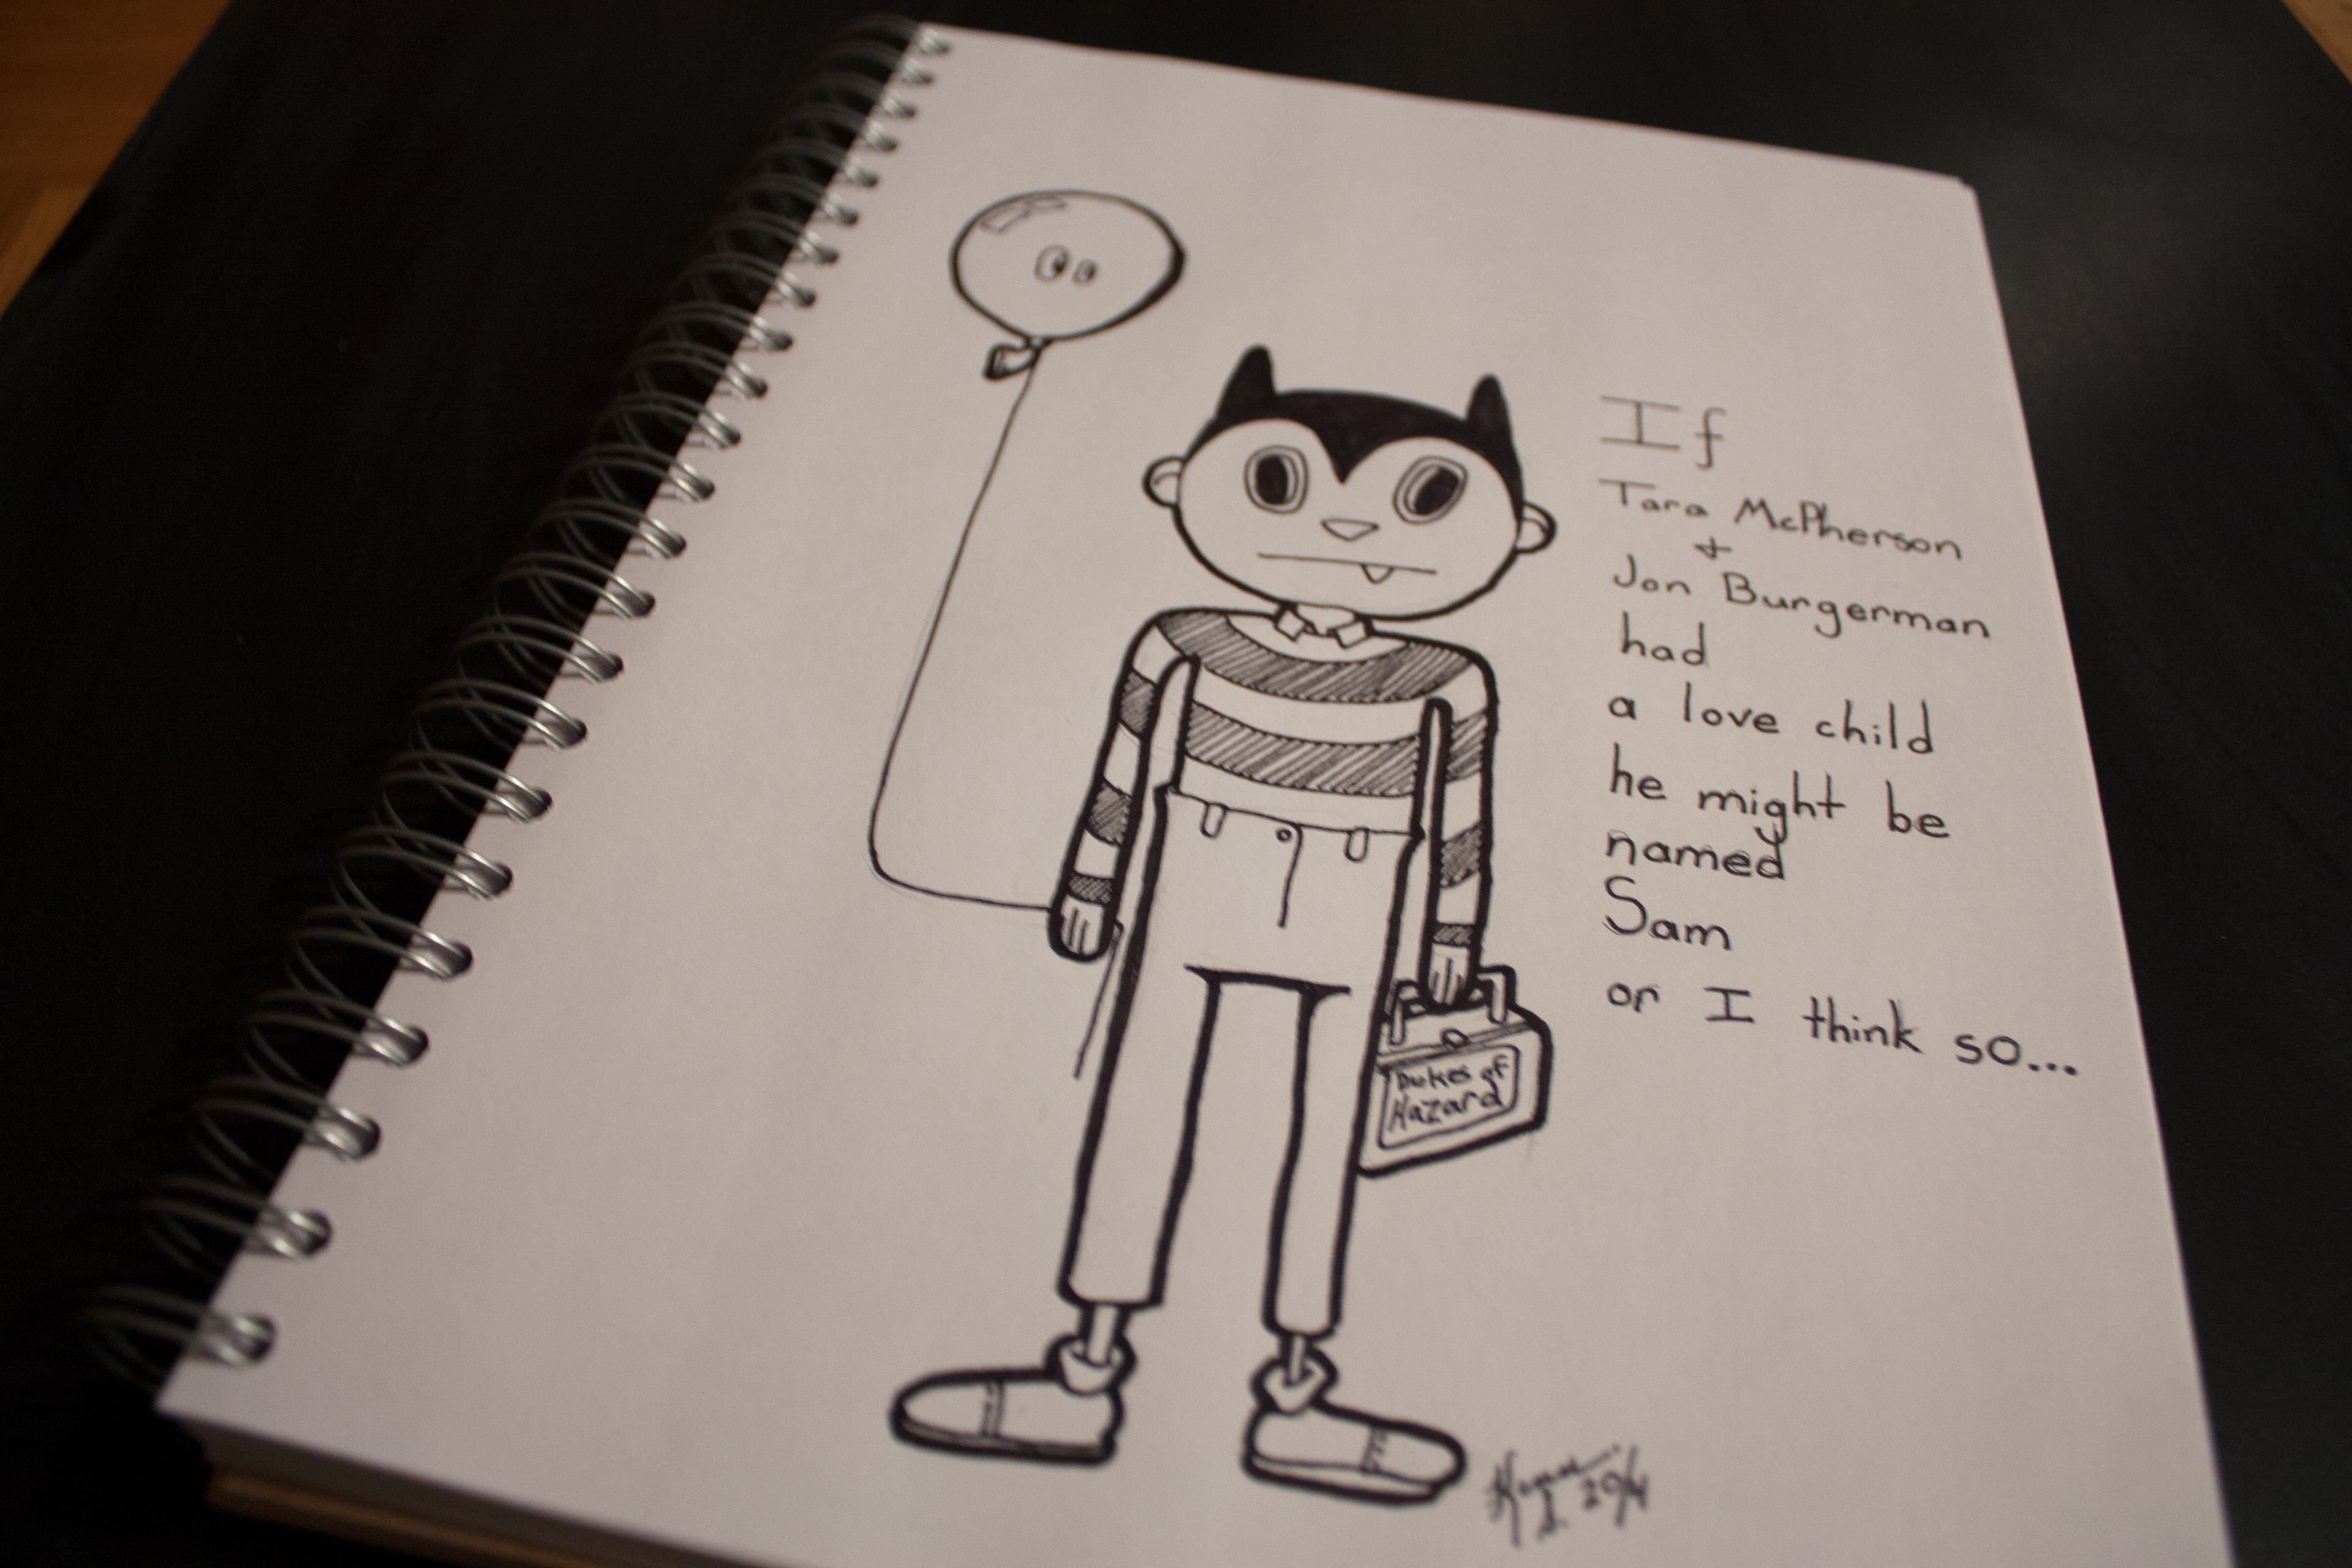 If
Tara McPherson
+
Jon Burgerman
had
a love child
he might be
named
Sam
or I think so...
Dukes of
Hazard